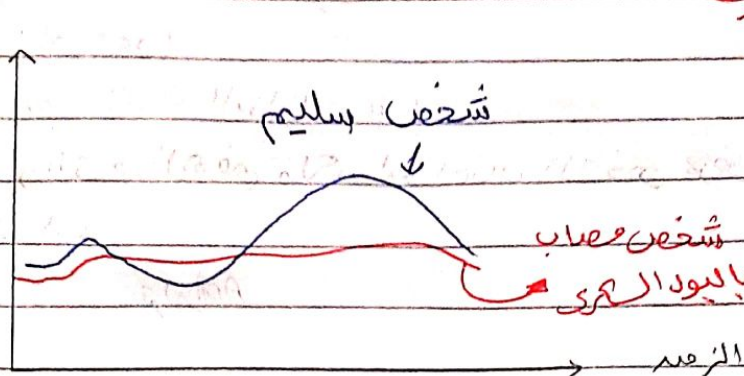 شخص سليم
شخص مصاب
بالبول السكرى
الزمن